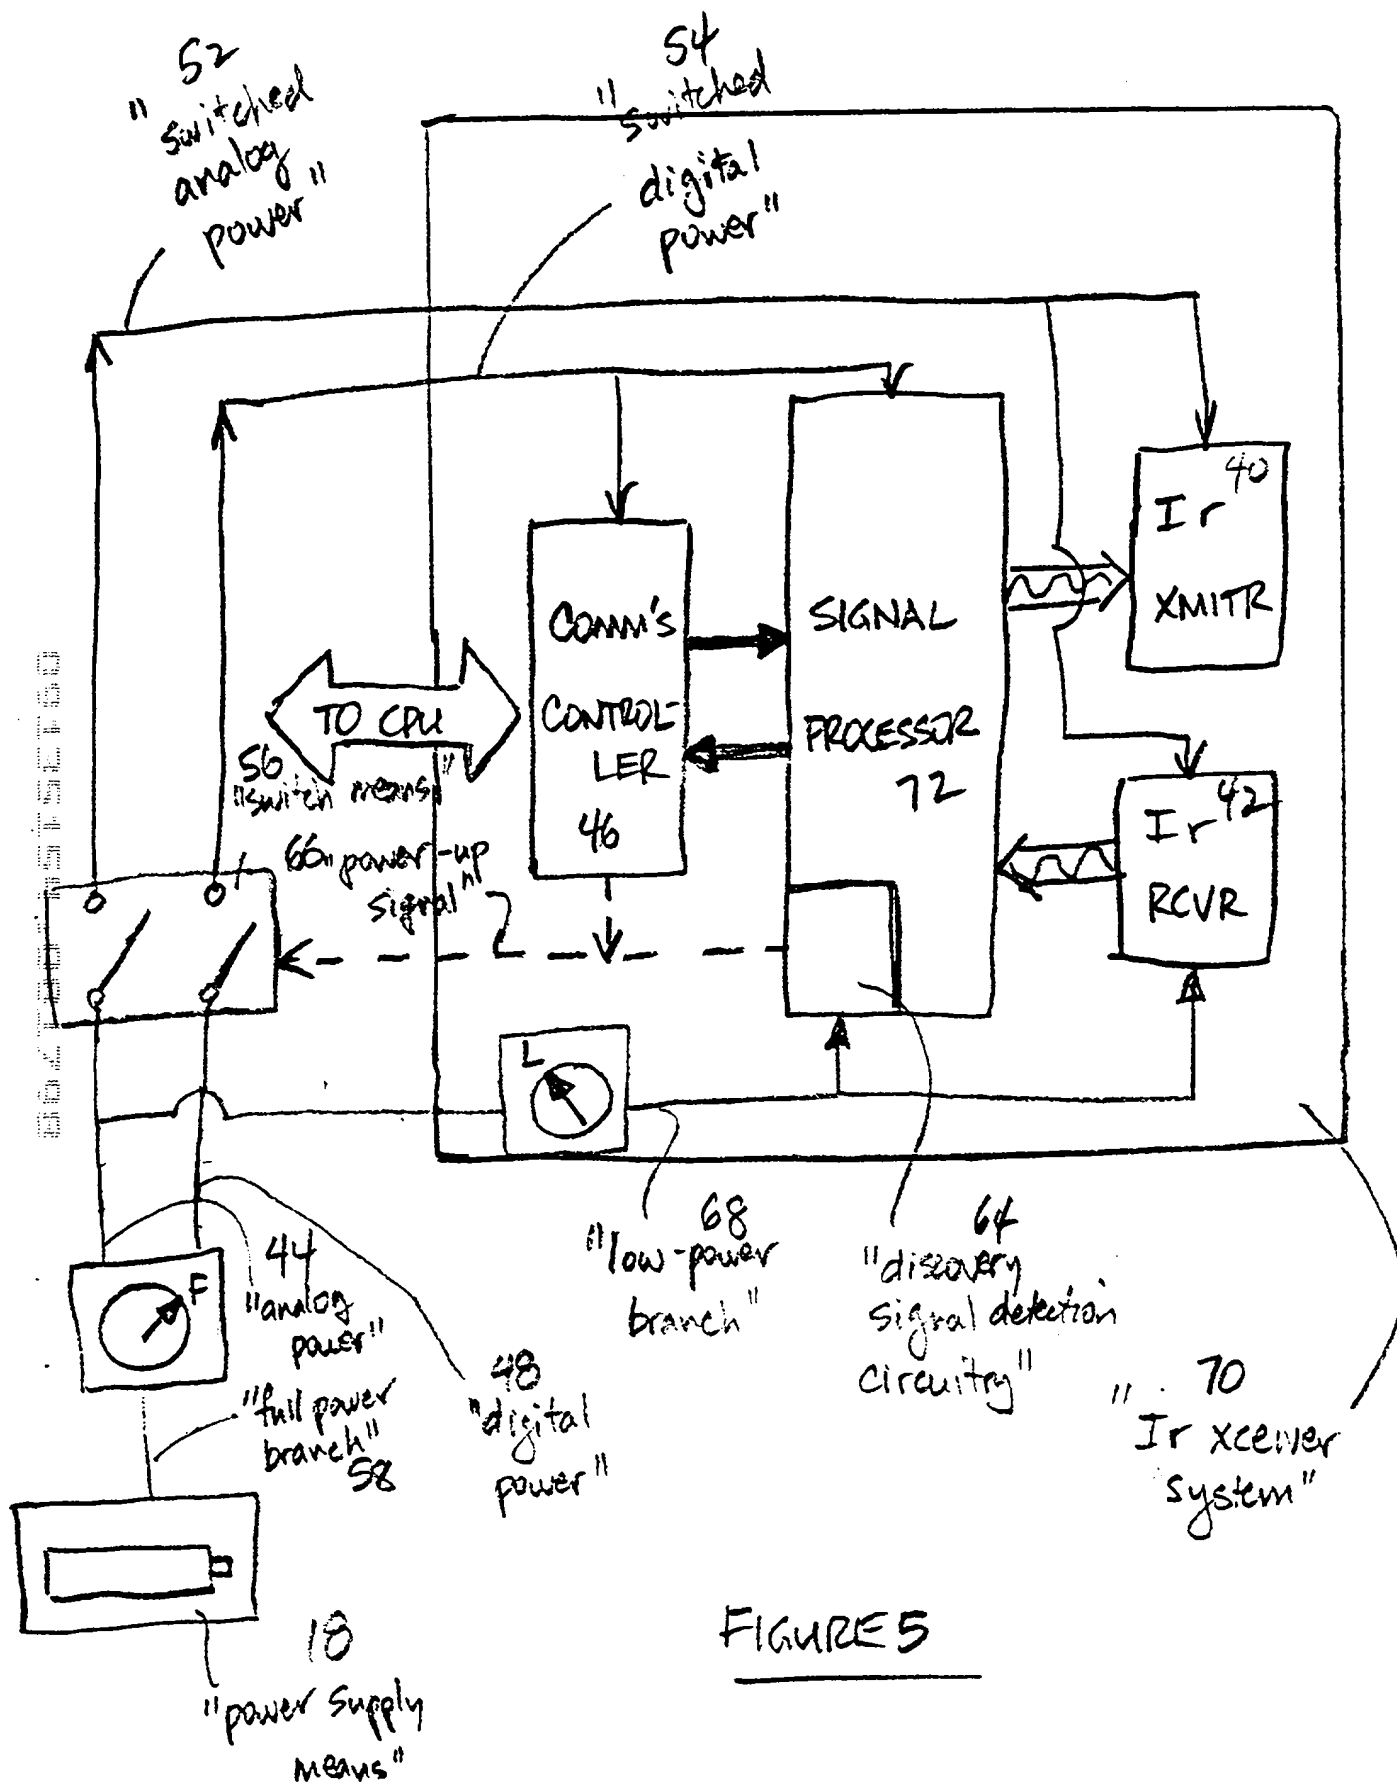 52
"switched
analog
power"
54
"switched
digital
power"
Ir 40
XMITR
COMM'S
CONTROL-
LER
46
SIGNAL
PROCESSOR
72
TO CPU
56
"switch means"
66 "power-up
signal"
Ir 42
RCVR
L
F
44
"analog
power"
48
"digital
power"
"full power
branch"
58
68
"low-power
branch"
64
"discovery
signal detection
circuitry"
70
"Ir xceiver
system"
18
"power supply
means"
FIGURE 5